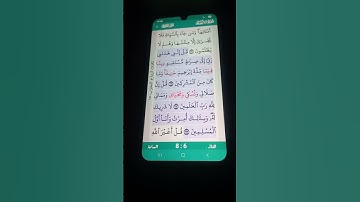 أَمْثَالِهَا وَمَن جَاءَ بِالسَّيِّئَةِ فَلَا
يُجْزَىٰ إِلَّا مِثْلَهَا وَهُمْ لَا
يُظْلَمُونَ قُلْ إِنَّنِي هَدَىٰنِي
رَبِّي إِلَىٰ صِرَٰطٍ مُّسْتَقِيمٍ دِينًا
قِيَمًا مِّلَّةَ إِبْرَٰهِيمَ حَنِيفًا وَمَا
كَانَ مِنَ الْمُشْرِكِينَ قُلْ إِنَّ
صَلَاتِي وَنُسُكِي وَمَحْيَايَ وَمَمَاتِي
لِلَّهِ رَبِّ الْعَٰلَمِينَ لَا شَرِيكَ
لَهُ وَبِذَٰلِكَ أُمِرْتُ وَأَنَا أَوَّلُ
الْمُسْلِمِينَ قُلْ أَغَيْرَ اللَّهِ
8:6